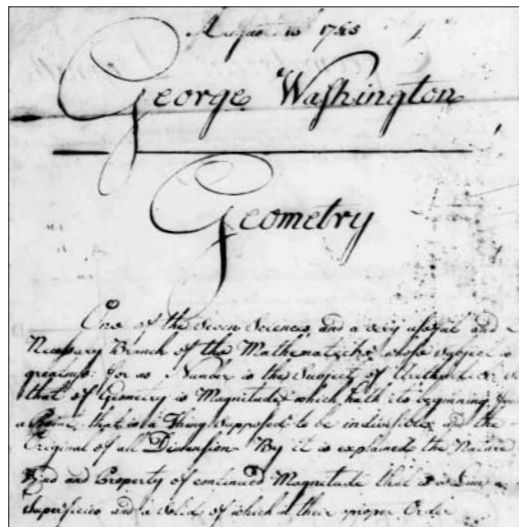 August 13 1745
George Washington
Geometry
One of the Seven Sciences, and a very useful and
Necessary Branch of the Mathematicks, whose Subject is
greatness: for as Number is the Subject of Arithmetick so
that of Geometry is Magnitude which hath its beginning from
a Point, that is a Thing Supposed to be indivisible, and the
Original of all Dimension By it is explained the Nature
Kind and Property of continued Magnitude that is a Line a
Superficies and a Solid, of which in their proper Order